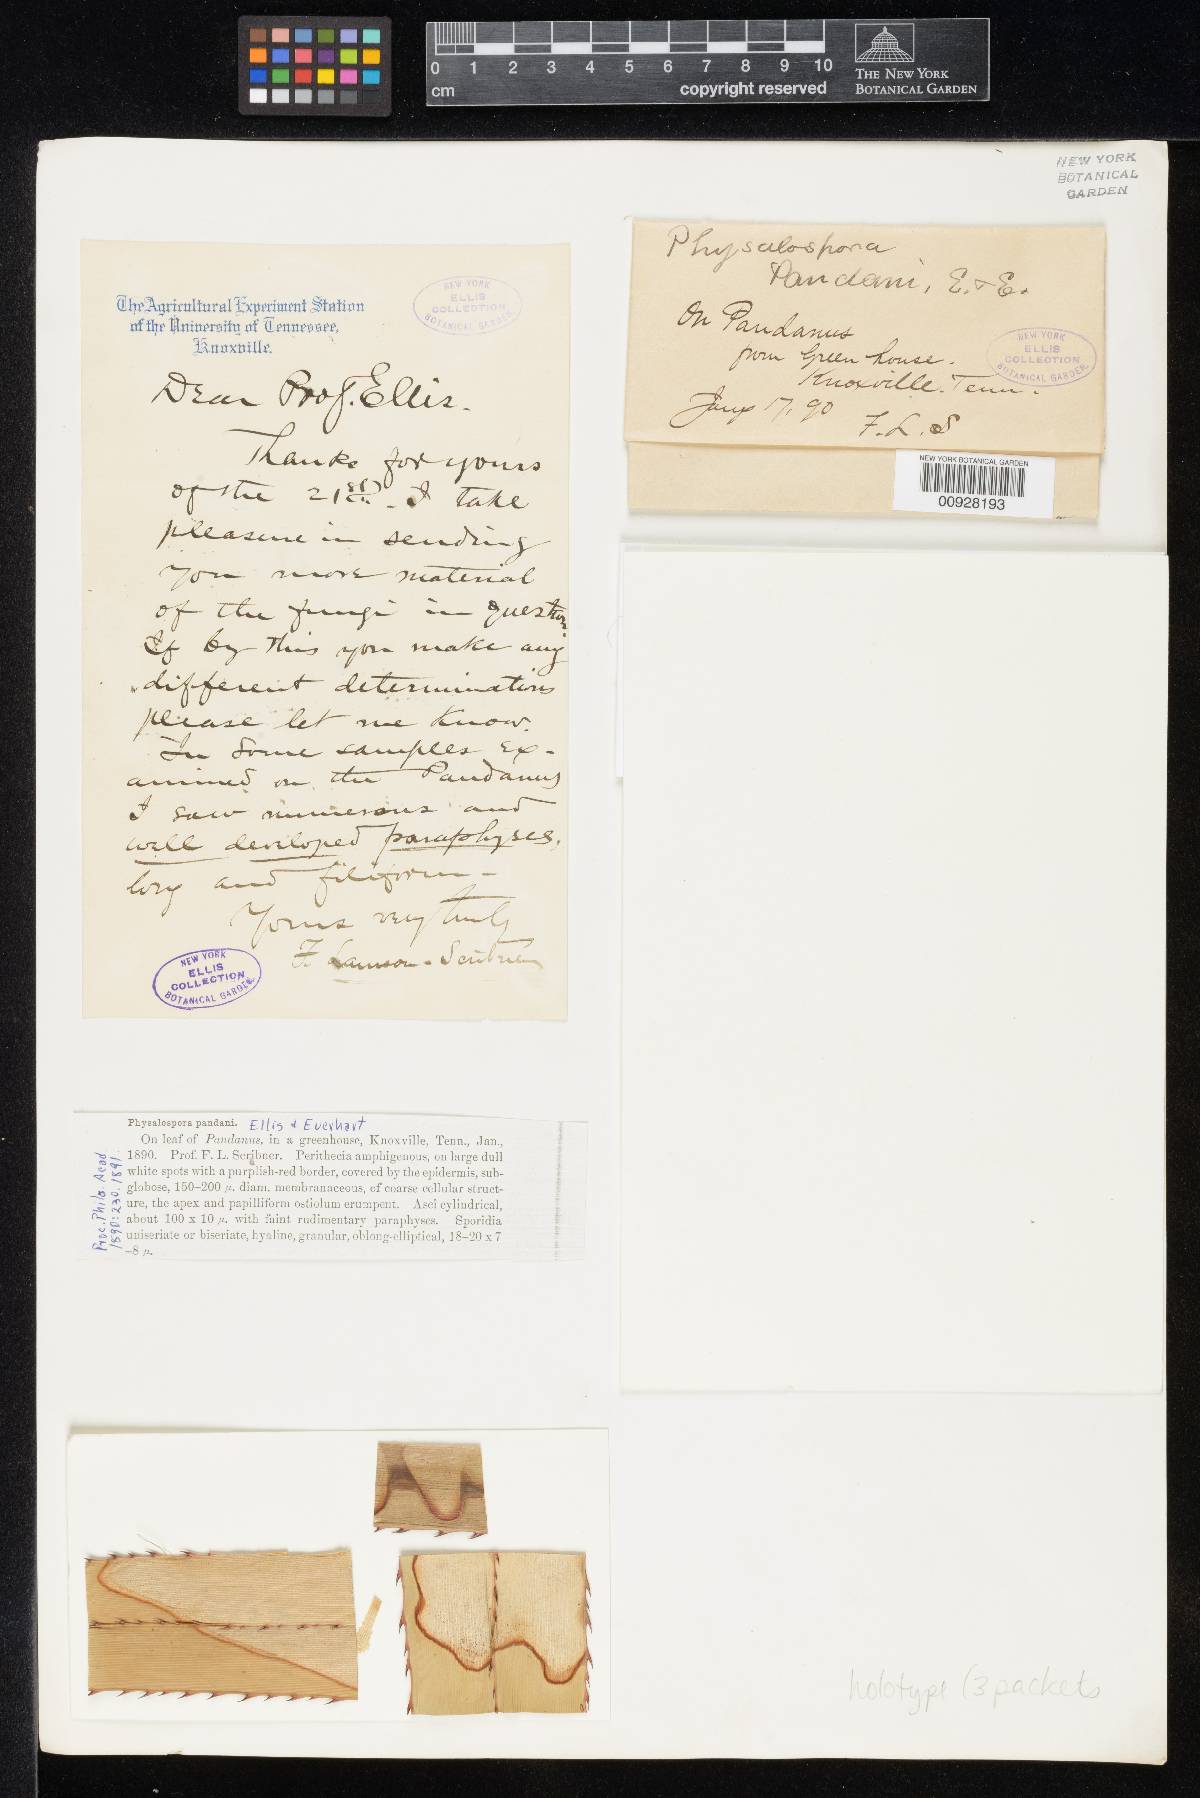 0 1 2 3 4 5 6 7 8 9 10
cm
copyright reserved
THE NEW YORK
BOTANICAL GARDEN
NEW YORK
BOTANICAL
GARDEN
The Agricultural Experiment Station
of the University of Tennessee,
Knoxville.
NEW YORK
ELLIS
COLLECTION
BOTANICAL GARDEN
Dear Prof. Ellis.
Thanks for yours
of the 21st. I take
pleasure in sending
you more material
of the fungi in question.
If by this you make any
different determinations
please let me know.
In some samples ex-
amined on the Pandanus
I saw numerous and
well developed paraphyses,
long and filiform -
Yours very truly
F. Lamson-Scribner
NEW YORK
ELLIS
COLLECTION
BOTANICAL GARDEN
Physalospora
Pandani, E. & E.
On Pandanus
from Green house.
Knoxville. Tenn.
Jany 17, 90
F. L. S
NEW YORK
ELLIS
COLLECTION
BOTANICAL GARDEN
NEW YORK BOTANICAL GARDEN
00928193
Physalospora pandani. Ellis & Everhart
On leaf of Pandanus, in a greenhouse, Knoxville, Tenn., Jan.,
1890. Prof. F. L. Scribner. Perithecia amphigenous, on large dull
white spots with a purplish-red border, covered by the epidermis, sub-
globose, 150–200 μ. diam. membranaceous, of coarse cellular struct-
ure, the apex and papilliform ostiolum erumpent. Asci cylindrical,
about 100 x 10 μ. with faint rudimentary paraphyses. Sporidia
uniseriate or biseriate, hyaline, granular, oblong-elliptical, 18–20 x 7
–8 μ.
Proc. Phila. Acad
1890: 230. 1891.
holotype (3 packets